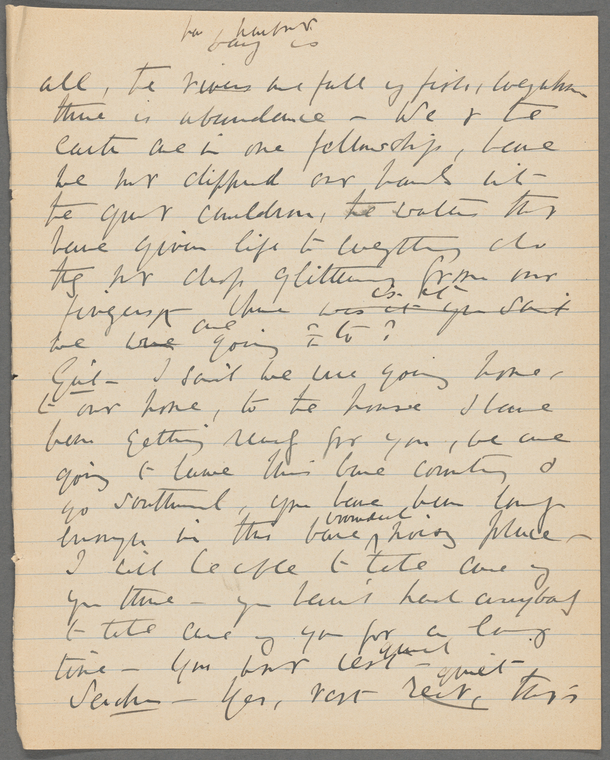 the harbour
bay is
all, the rivers are full of fish, everywhere
there is abundance – We & the
earth are in one fellowship, have
we not dipped our hands into
the great cauldron, the waters that
have given life to everything do
they not drop glittering from our
fingers, where was it is it you said
we were are going to?
Girl – I said we are going home,
to our home, to the house I have
been getting ready for you, we are
going to leave this bare country &
go southward, you have been long
enough in this bare crowded noisy place –
I will be able to take care of
you there – you haven't had anybody
to take care of you for a long
time – You want rest – quiet
– Yes, rest rest, quiet that's